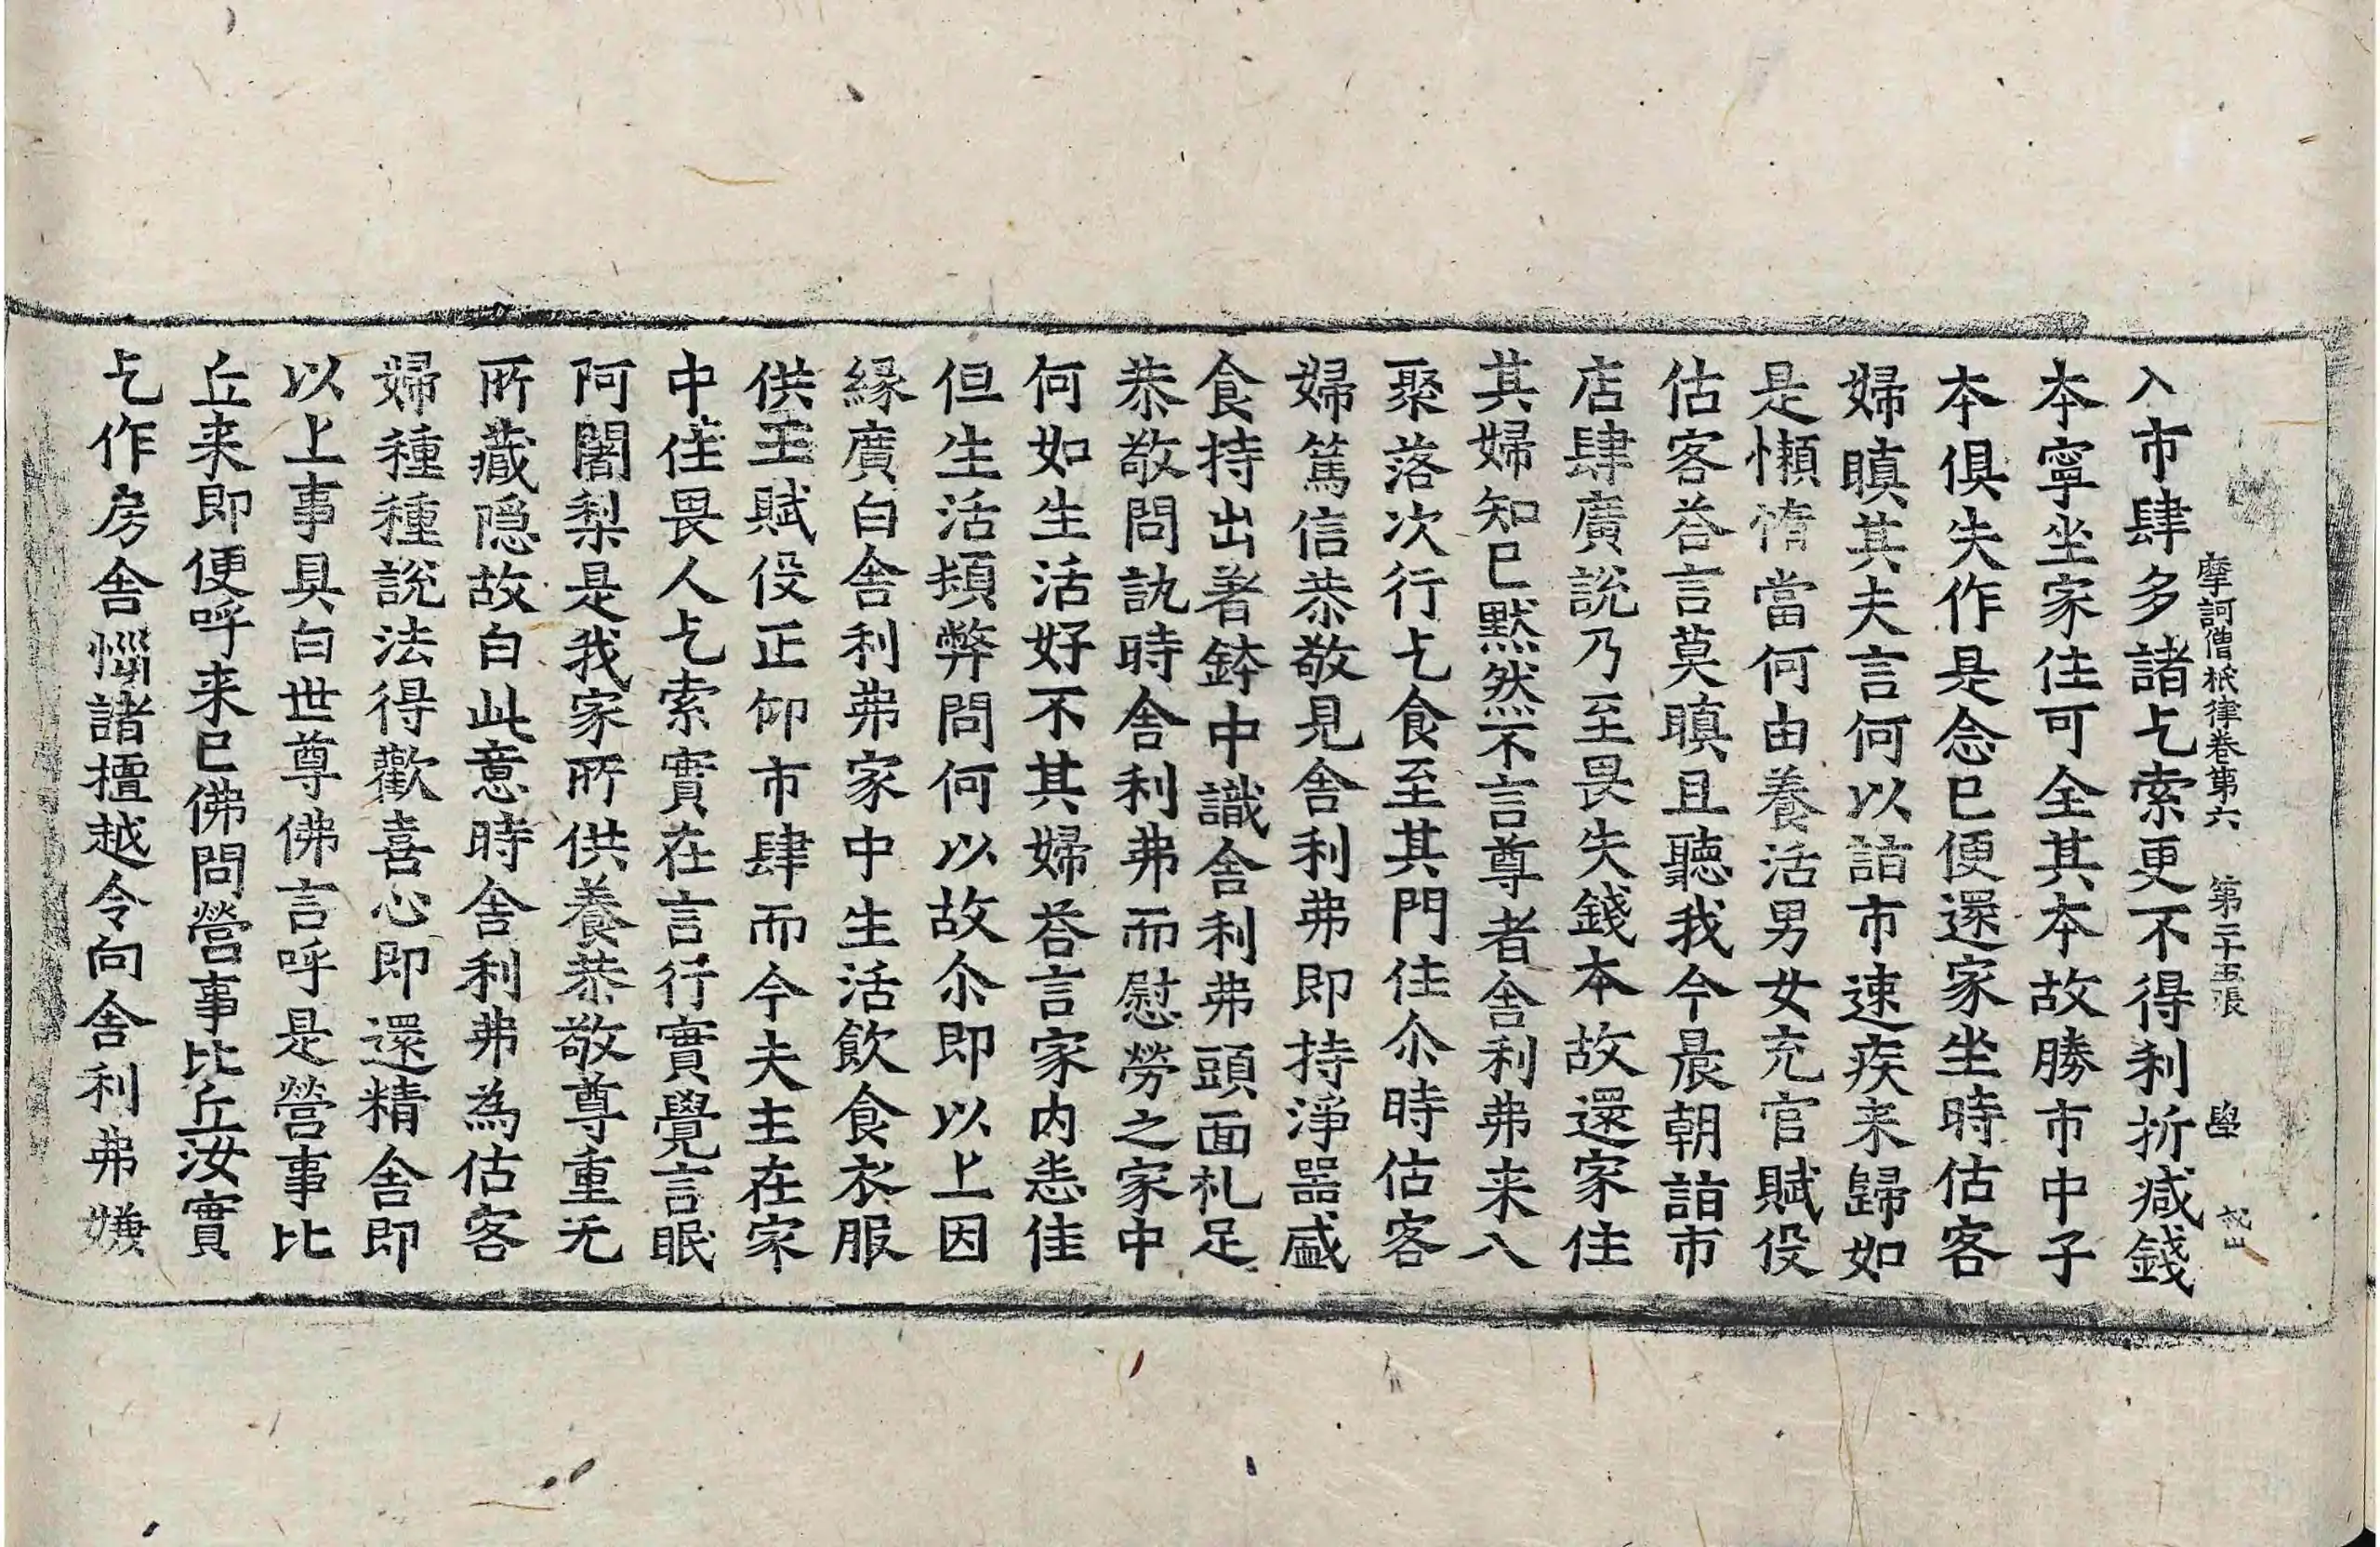 摩訶僧祇律卷第六　第二十五張　學
入市肆多諸乞索更不得利折减錢
本寧坐家住可全其本故勝市中子
本俱失作是念已便還家坐時估客
婦瞋其夫言何以詣市速疾来歸如
是懶惰當何由養活男女充官賦役
估客荅言莫瞋且聽我今晨朝詣市
店肆廣說乃至畏失錢本故還家住
其婦知已默然不言尊者舍利弗来入
聚落次行乞食至其門住尒時估客
婦篤信恭敬見舍利弗即持淨噐盛
食持出著鉢中識舍利弗頭面礼足
恭敬問訊時舍利弗而慰勞之家中
何如生活好不其婦荅言家内悉佳
但生活頓弊問何以故尒即以上因
緣廣白舍利弗家中生活飲食衣服
供王賦役正仰市肆而今夫主在家
中住畏人乞索實在言行實覺言眠
阿闍梨是我家所供養恭敬尊重无
所藏隱故白此意時舍利弗為估客
婦種種說法得歡喜心即還精舍即
以上事具白世尊佛言呼是營事比
丘来即便呼来已佛問營事比丘汝實
乞作房舍惱諸檀越令向舍利弗嫌